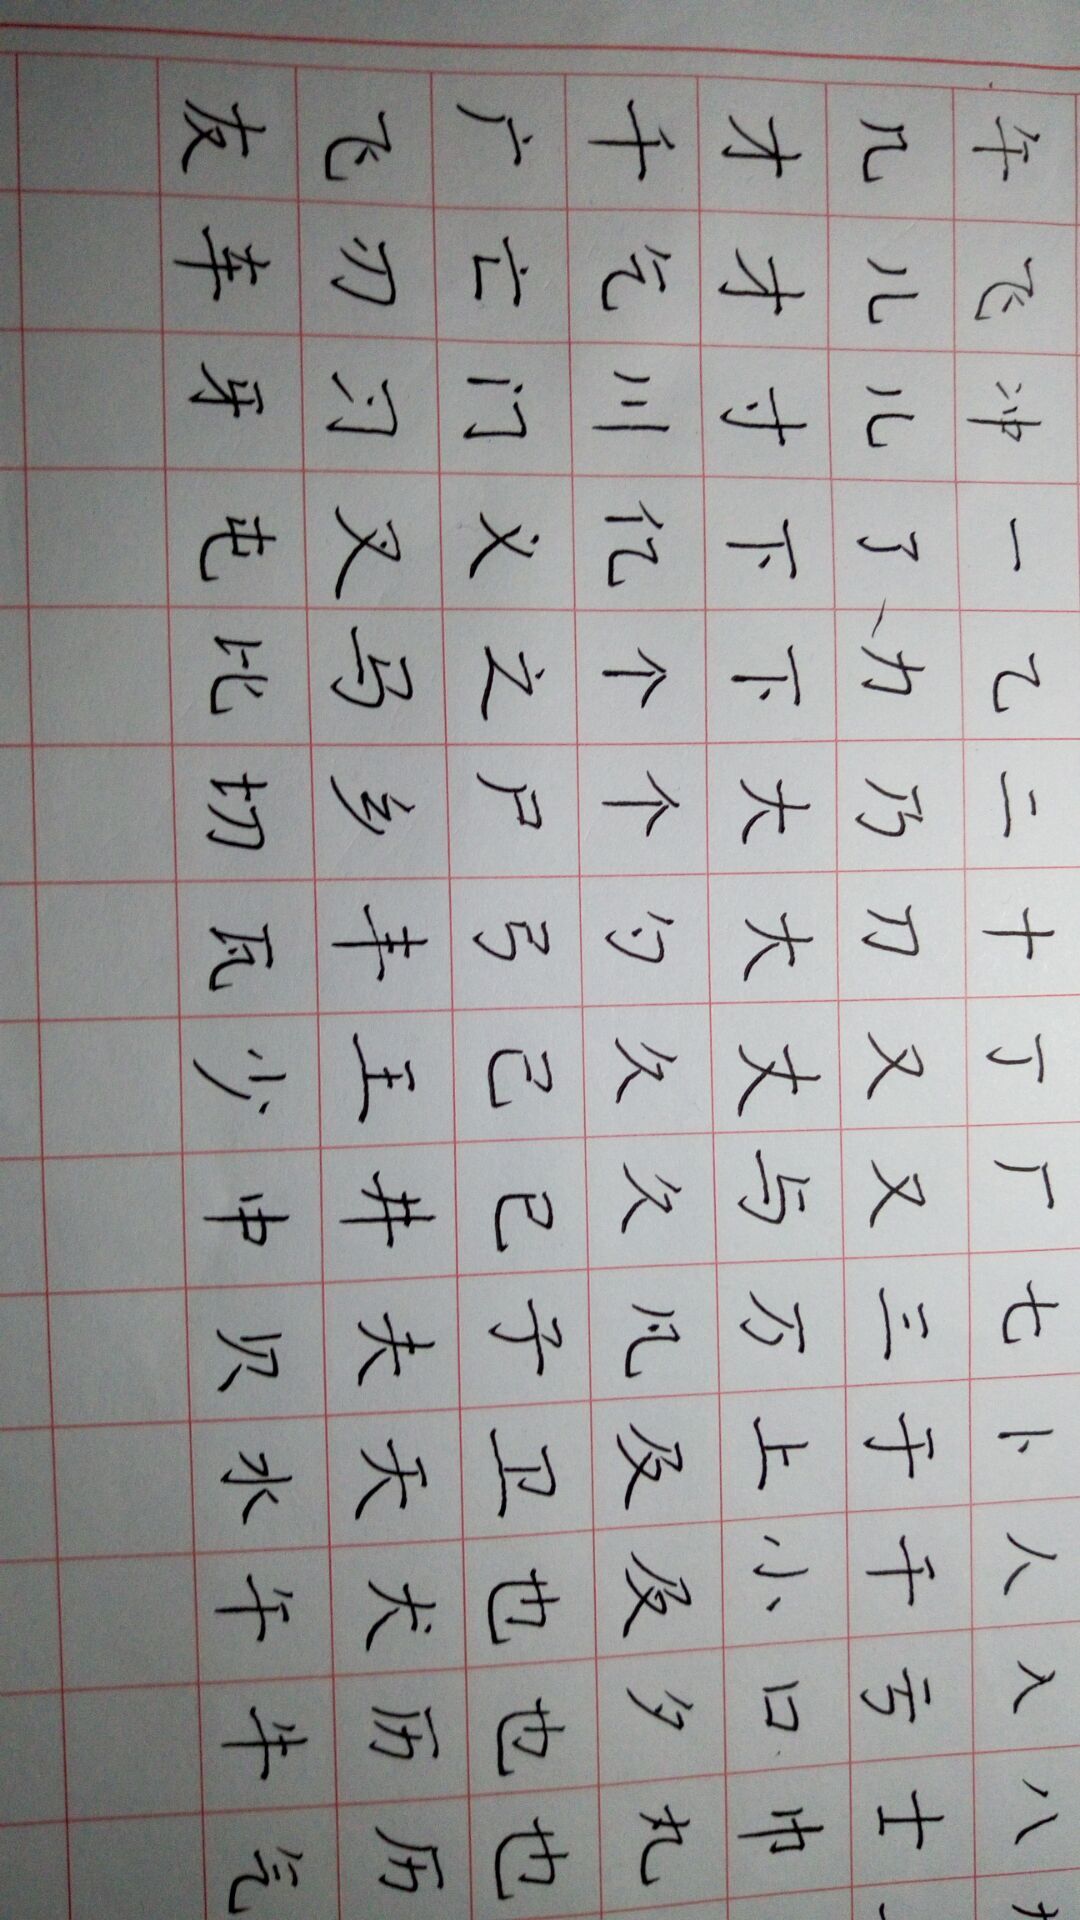 午飞冲一乙二十丁厂七卜人入八
几儿儿了力乃刀又又三于干亏士
才才寸下下大大丈与万上小口巾
千乞川亿个个勺久久凡及及夕丸
广亡门义之尸弓己已子卫也也也
飞刃习叉马乡丰王井夫天犬历历
友车牙屯比切瓦少中贝水午牛气